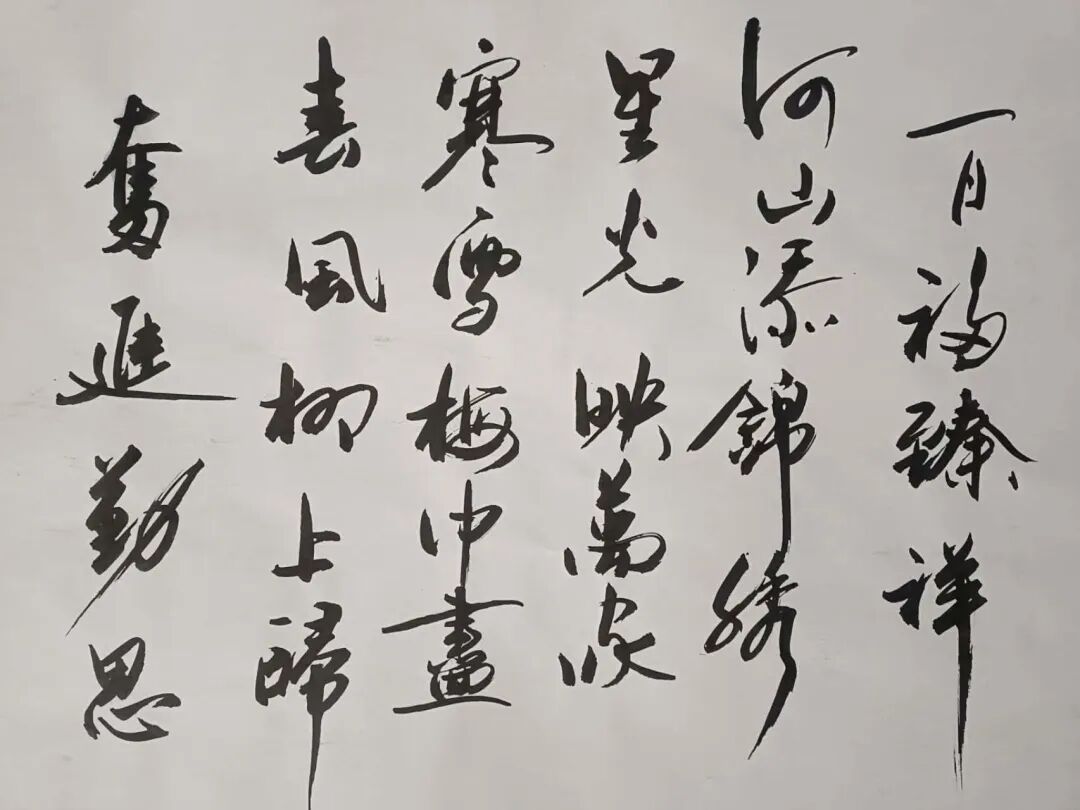 一月福臻祥
河山添錦綉
星光映萬家
寒雪梅中盡
春風柳上歸
奮進勤思